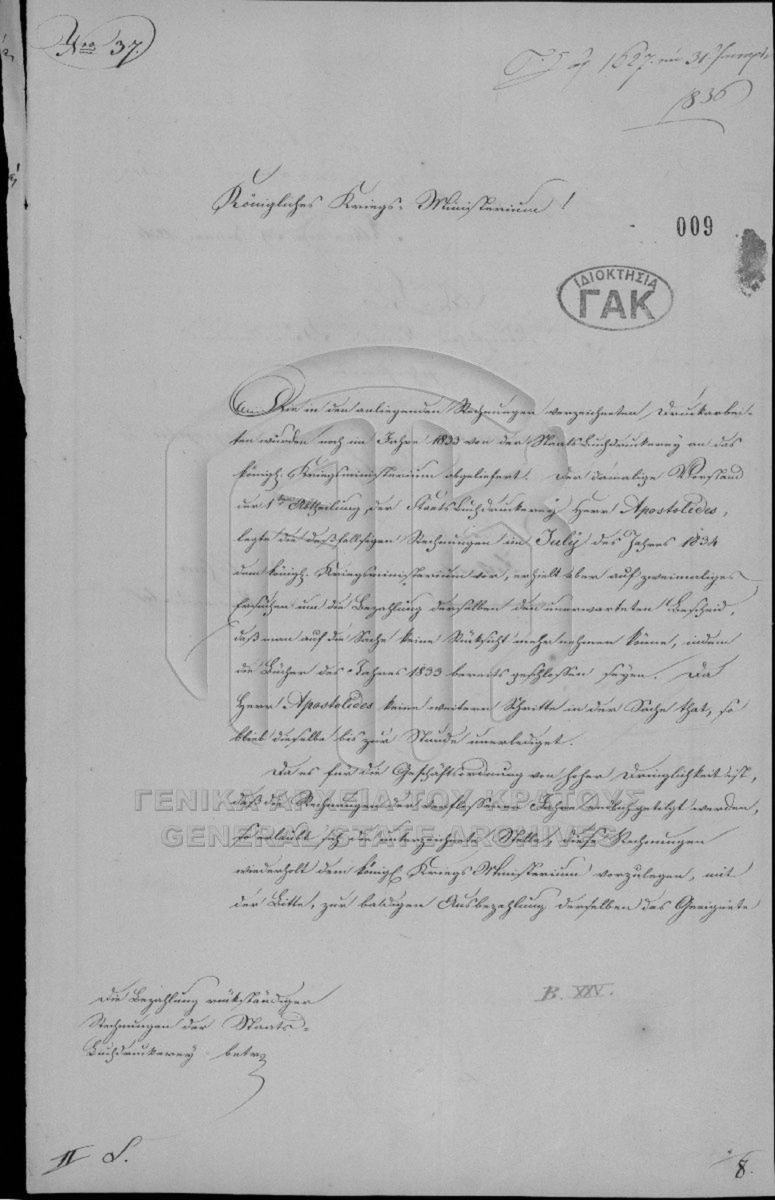 Nro 37.
1627.
1836
Königliches Kriegs-Ministerium!
009
ΙΔΙΟΚΤΗΣΙΑ
ΓΑΚ
Die in den anliegenden Rechnungen verzeichneten Druckarbei-
ten wurden noch im Jahre 1833 von der Staatsbuchdruckerey an das
königl. Kriegsministerium abgeliefert. Der damalige Vorstand
der 1ten Abtheilung der Staatsbuchdruckerey Herr Apostolides,
legte die desfallsigen Rechnungen im July des Jahres 1834
dem königl. Kriegsministerium vor, erhielt aber auf zweimaliges
Ersuchen um die Bezahlung derselben den unerwarteten Bescheid,
daß man auf die Sache keine Rücksicht mehr nehmen könne, indem
die Bücher des Jahres 1833 bereits geschlossen seyen. Da
Herr Apostolides keine weitern Schritte in der Sache that, so
blieb dieselbe bis zur Stunde unerlediget.
Da es für die Geschäftsordnung von hoher Dringlichkeit ist,
daß die Rechnungen der verflossenen Jahre endlich getilgt werden,
so erlaubt sich die unterzeichnete Stelle, diese Rechnungen
wiederholt dem königl. Kriegs Ministerium vorzulegen, mit
der Bitte, zur baldigen Ausbezahlung derselben das Geeignete
ΓΕΝΙΚΑ ΑΡΧΕΙΑ ΤΟΥ ΚΡΑΤΟΥΣ
GENERAL STATE ARCHIVES
B. XIV.
Die Bezahlung rückständiger
Rechnungen der Staats-
buchdruckerey betr.
II S.
8.